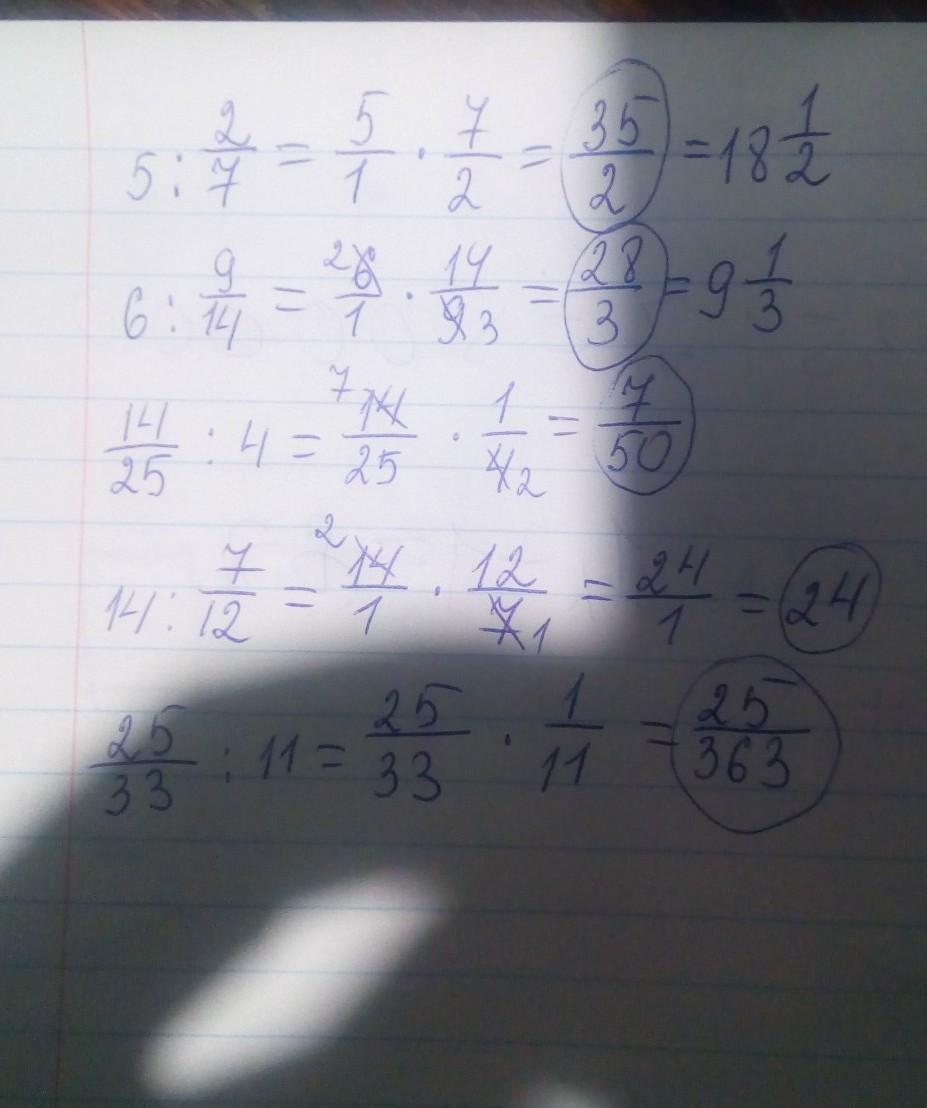 5 : 2/7 = 5/1 · 7/2 = 35/2 = 18 1/2
6 : 9/14 = 2 6/1 · 14/9 3 = 28/3 = 9 1/3
14/25 : 4 = 7 14/25 · 1/4 2 = 7/50
14 : 7/12 = 2 14/1 · 12/7 1 = 24/1 = 24
25/33 : 11 = 25/33 · 1/11 = 25/363